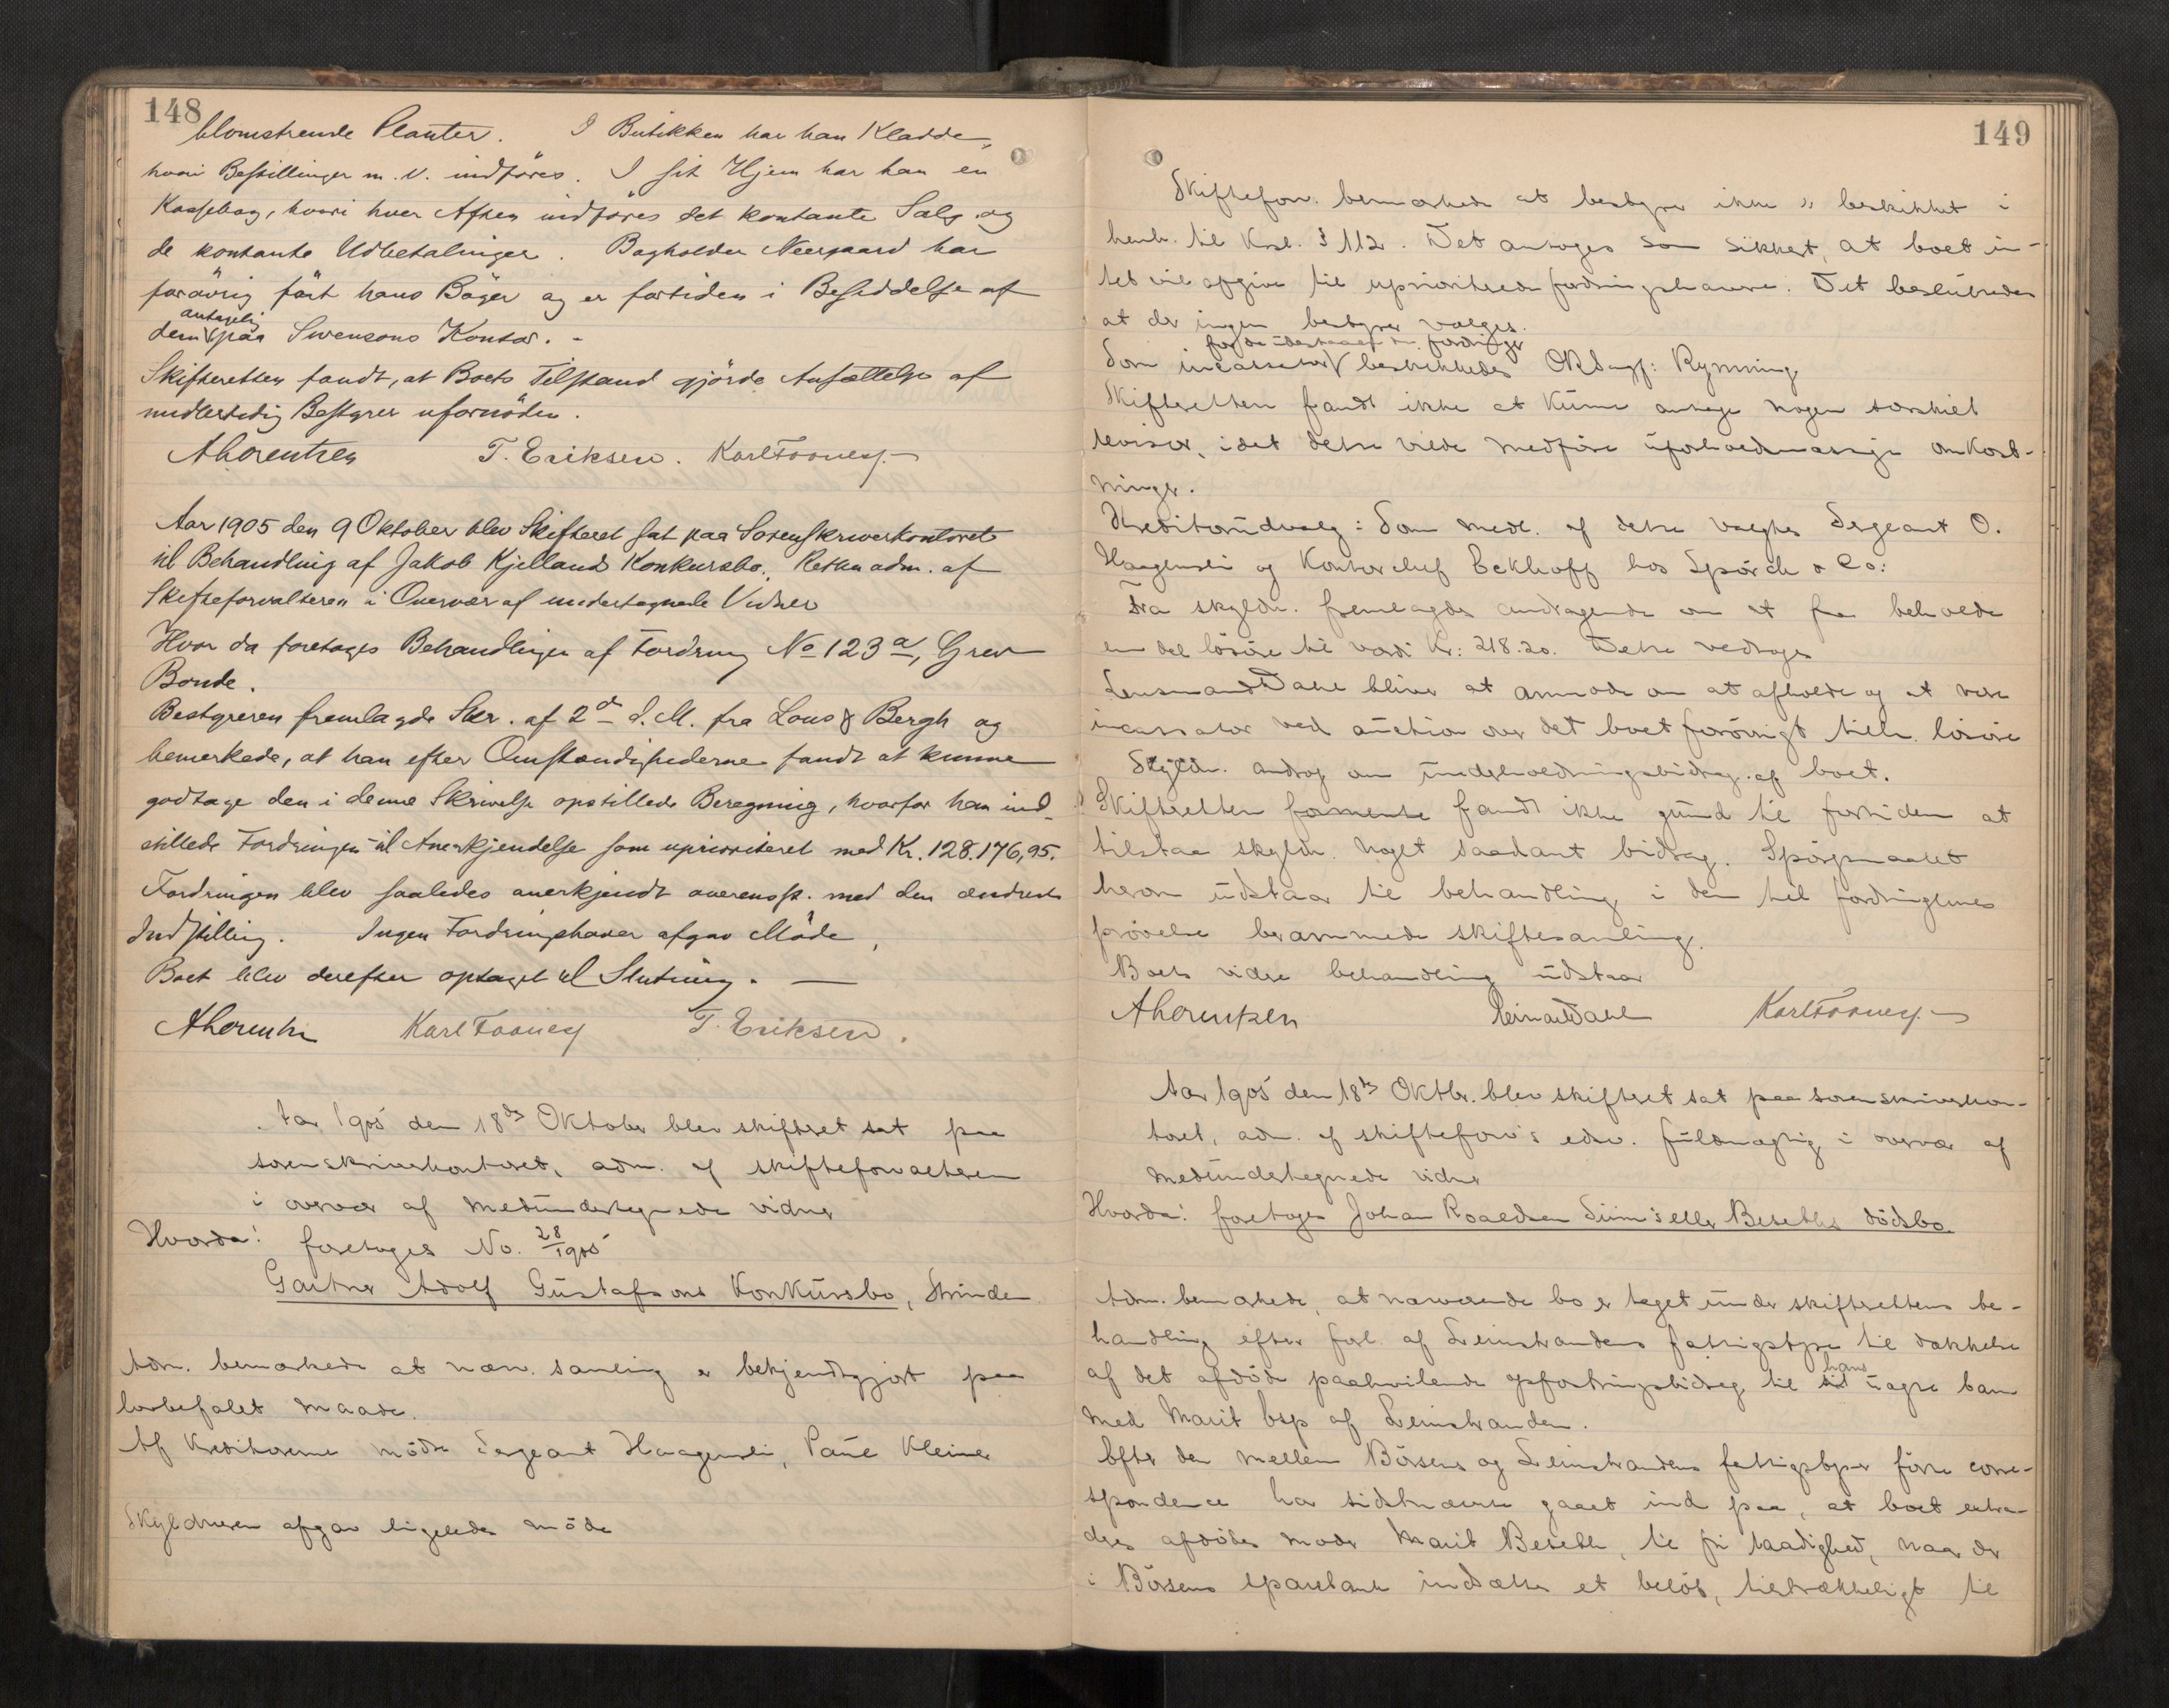 148
blomstrende Planter. I Butikken har han Kladde,
hvori Bestillinger m. v. indføres. I sit Hjem har han en
Kassebog, hvori hver Aften indføres det kontante Salg og
de kontante Udbetalinger. Bogholder Neergaard har
forøvrig ført hans Bøger og er fortiden i Besiddelse af
antagelig
dem paa Svensons Kontor. -
Skifteretten fandt, at Boets Tilstand gjörde Ansættelse af
midlertidig Bestyrer ufornöden.
A Lorentzen T. Eriksen. Karl Foosnæs.
Aar 1905 den 9 Oktober blev Skifteret sat paa Sorenskriverkontoret
til Behandling af Jakob Kjellands Konkursbo. Retten adm. af
Skifteforvalteren i Overvær af undertegnede Vidner
Hvor da foretages Behandlingen af Fordring No 123 a, Grev
Bonde.
Bestyreren fremlagde Skr. af 2den d. M. fra Lous & Bergh og
bemerkede, at han efter Omstændighederne fandt at kunne
godtage den i denne Skrivelse opstillede Beregning, hvorfor han ind-
stillede Fordringen til Anerkjendelse som uprioriteret med Kr. 128.176,95.
Fordringen blev saaledes anerkjendt overensst. med den ændrede
Indstilling. Ingen Fordringshaver afgav Möde,
Boet blev derefter optaget til Slutning. —
A Lorentzen Karl Foosnæs T. Eriksen.
Aar 1905 den 18de Oktober blev skifteret sat paa
sorenskriverkontoret, adm. af skifteforvalteren
i overvær af medundertegnede vidner
Hvorda: foretages No. 28/1905
Gartner Adolf Gustafsons Konkursbo, Strinden
Adm. bemærkede at nærv. samling er bekjendtgjort paa
lovbefalet maade.
Af Kreditorerne mödte Sergeant Haagensli, Paul Kleiner
Skyldneren afgav ligeledes möde
149
Skifteforv. bemærkede at bestyrer ikke er beskikket i
henh. til Ksl. § 112. Det antoges som sikkert, at boet in-
tet vil afgive til uprioriterede fordringshavere. Det besluttedes
at der ingen bestyrer vælges.
for de udestaaende fordringer
Som incassator beskikkedes ORSagf: Rynning
Skifteretten fandt ikke at kunne antage nogen særskilt
revisor, idet dette vilde medföre uforholdsmæssige omkost-
ninger.
Kreditorudvalg: Som medl. af dette valgtes Sergeant O.
Haagensli og Kontorchef Eckhoff hos Spörck & Co:
Fra skyldn. fremlagdes andragende om at faa beholde
en del lösöre til værdi Kr: 218.20. Dette vedtoges
Lensmand Dahl bliver at anmode om at afholde og at være
incassator ved auction over det boet forövrigt tilh. lösöre
Skyldn. androg om underholdningsbidrag af boet.
Skifteretten formente fandt ikke grund til fortiden at
tilstaa skyldn. noget saadant bidrag. Spörgsmaalet
herom udstaar til behandling i den til fordringernes
prövelse berammede skiftesamling.
Boets videre behandling udstaar
A Lorentzen Einar Dahl Karl Foosnæs.
Aar 1905 den 18de Oktbr. blev skifteret sat paa sorenskriverkon-
toret, adm. af skifteforv's edsv. fuldmægtig i overvær af
medundertegnede vidner
Hvorda: foretoges Johan Roaldsen Siim's eller Beseths dödsbo.
Adm. bemærkede, at nærværende bo er taget under skifterettens be-
handling efter forl. af Leinstrandens fattigstyre til dækkelse
af det afdöde paahvilende opfostringsbidrag til hans uægte barn
med Marit Esp af Leinstranden.
Efter den mellem Börsens og Leinstrandens fattigstyrer förte corre-
spondence har sidstnævnte gaaet ind paa, at boet extra-
deres afdödes moder Marit Beseth, til fri raadighed, naar der
i Börsens sparebank indsættes et belöb, tilstrækkeligt til